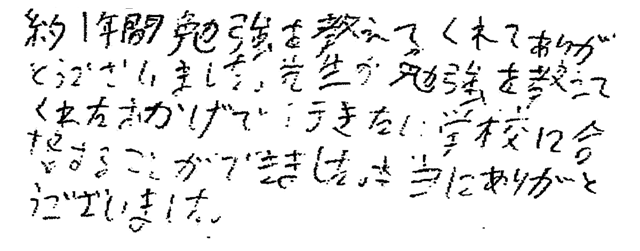 約1年間勉強を教えてくれてありが
とうございました。先生が勉強を教えて
くれたおかげで行きたい学校に合
格することができました。本当にありがと
うございました。